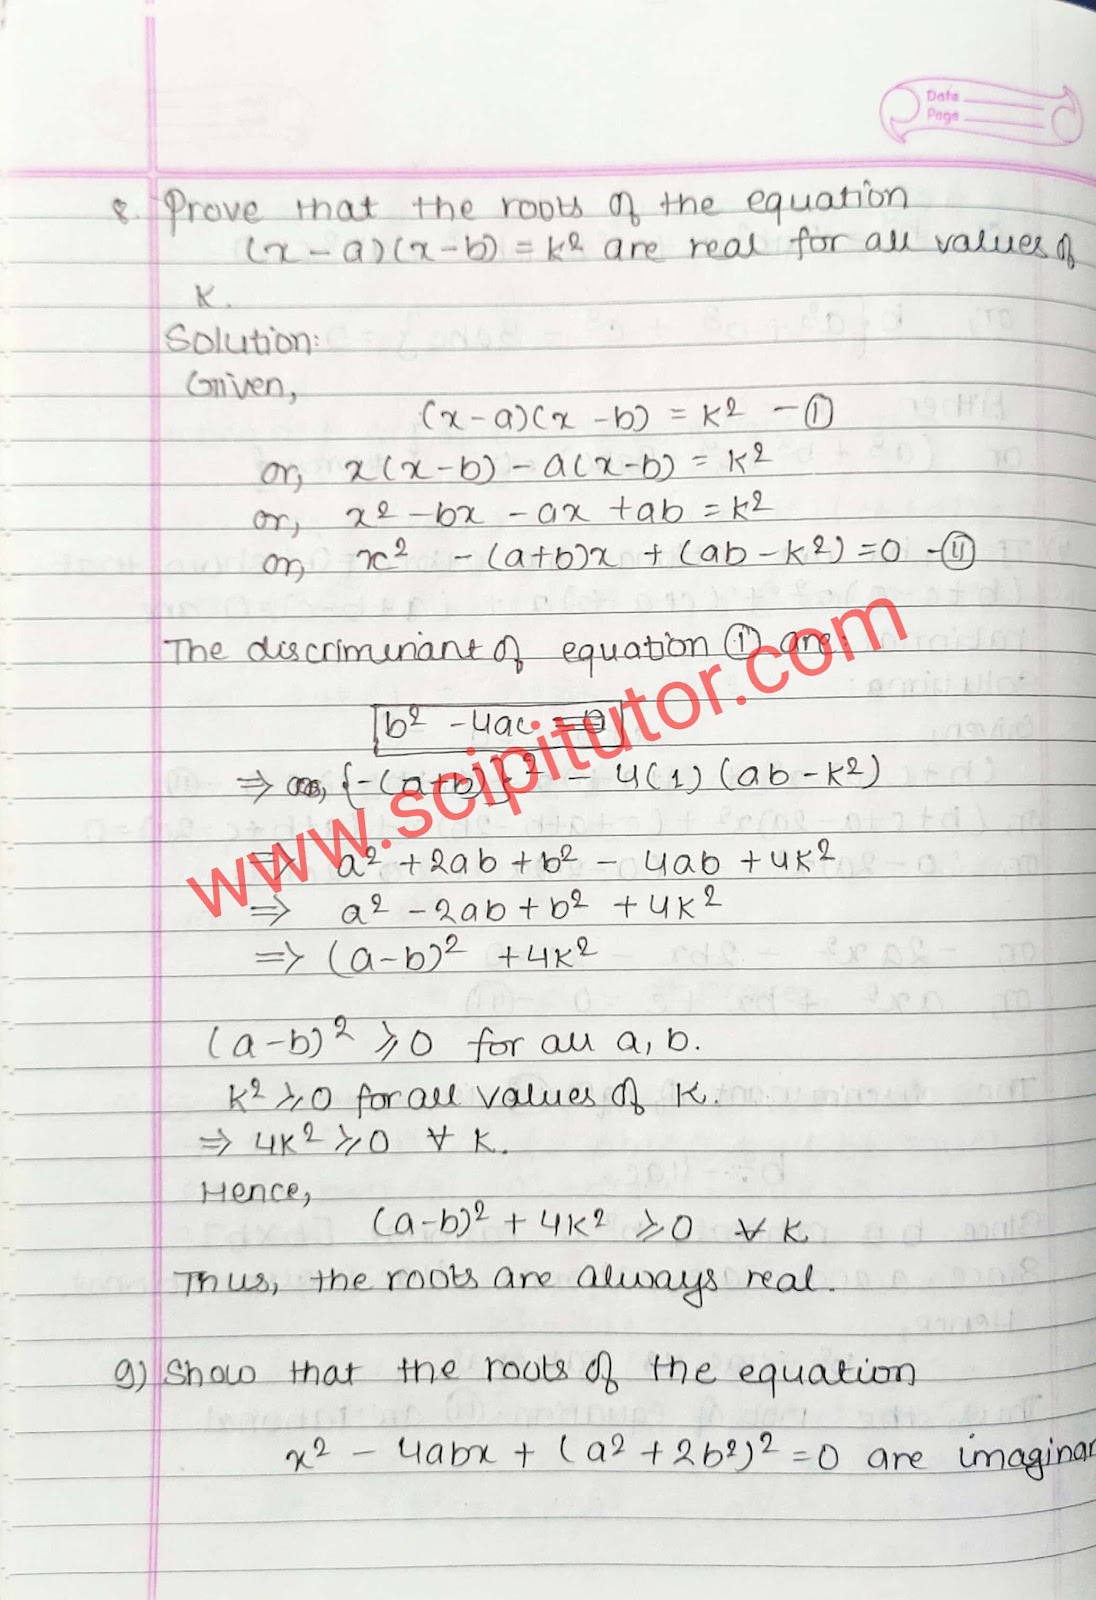 Date
Page
8. Prove that the roots of the equation
(x - a)(x - b) = k² are real for all values of
k.
Solution:
Given,
(x - a)(x - b) = k² - ①
or, x(x - b) - a(x - b) = k²
or, x² - bx - ax + ab = k²
or, x² - (a+b)x + (ab - k²) = 0 - ⑪
The discriminant of equation ⑪ are:
b² - 4ac = 0
⇒ {-(a+b)}² - 4(1)(ab - k²)
⇒ a² + 2ab + b² - 4ab + 4k²
⇒ a² - 2ab + b² + 4k²
⇒ (a-b)² + 4k²
(a-b)² ⩾ 0 for all a, b.
k² ⩾ 0 for all values of k.
⇒ 4k² ⩾ 0 ∀ k.
Hence,
(a-b)² + 4k² ⩾ 0 ∀ k
Thus, the roots are always real.
9) Show that the roots of the equation
x² - 4abx + (a² + 2b²)² = 0 are imaginar
www.scipitutor.com